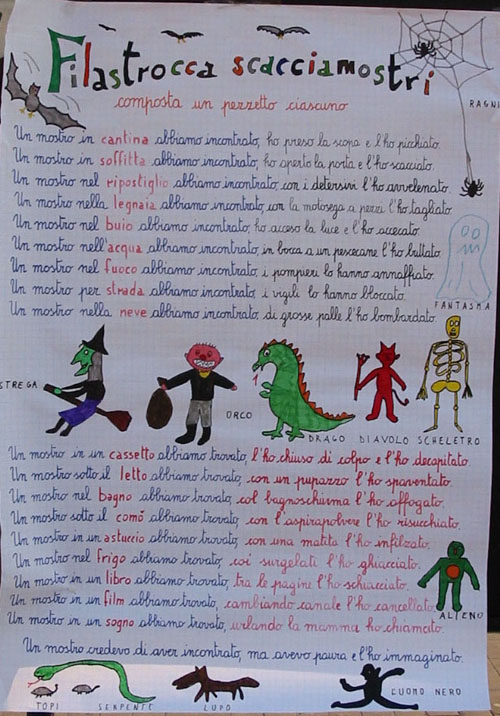 Filastrocca scacciamostri
composta un pezzetto ciascuno
RAGNI
Un mostro in cantina abbiamo incontrato, ho preso la scopa e l'ho picchiato.
Un mostro in soffitta abbiamo incontrato, ho aperto la porta e l'ho scacciato.
Un mostro nel ripostiglio abbiamo incontrato, con i detersivi l'ho avvelenato.
Un mostro nella legnaia abbiamo incontrato, con la motosega a pezzi l'ho tagliato.
Un mostro nel buio abbiamo incontrato, ho acceso la luce e l'ho accecato.
Un mostro nell'acqua abbiamo incontrato, in bocca a un pescecane l'ho buttato.
Un mostro nel fuoco abbiamo incontrato, i pompieri lo hanno annaffiato.
Un mostro per strada abbiamo incontrato, i vigili lo hanno bloccato.
Un mostro nella neve abbiamo incontrato, di grosse palle l'ho bombardato.
FANTASMA
STREGA
ORCO
DRAGO
DIAVOLO
SCHELETRO
Un mostro in un cassetto abbiamo trovato, l'ho chiuso di colpo e l'ho decapitato.
Un mostro sotto il letto abbiamo trovato, con un pupazzo l'ho spaventato.
Un mostro nel bagno abbiamo trovato, col bagnoschiuma l'ho affogato.
Un mostro sotto il comò abbiamo trovato, con l'aspirapolvere l'ho risucchiato.
Un mostro in un astuccio abbiamo trovato, con una matita l'ho infilzato.
Un mostro nel frigo abbiamo trovato, coi surgelati l'ho ghiacciato.
Un mostro in un libro abbiamo trovato, tra le pagine l'ho schiacciato.
Un mostro in un film abbiamo trovato, cambiando canale l'ho cancellato.
Un mostro in un sogno abbiamo trovato, urlando la mamma ho chiamato.
ALIENO
Un mostro credevo di aver incontrato, ma avevo paura e l'ho immaginato.
TOPI
SERPENTE
LUPO
L'UOMO NERO